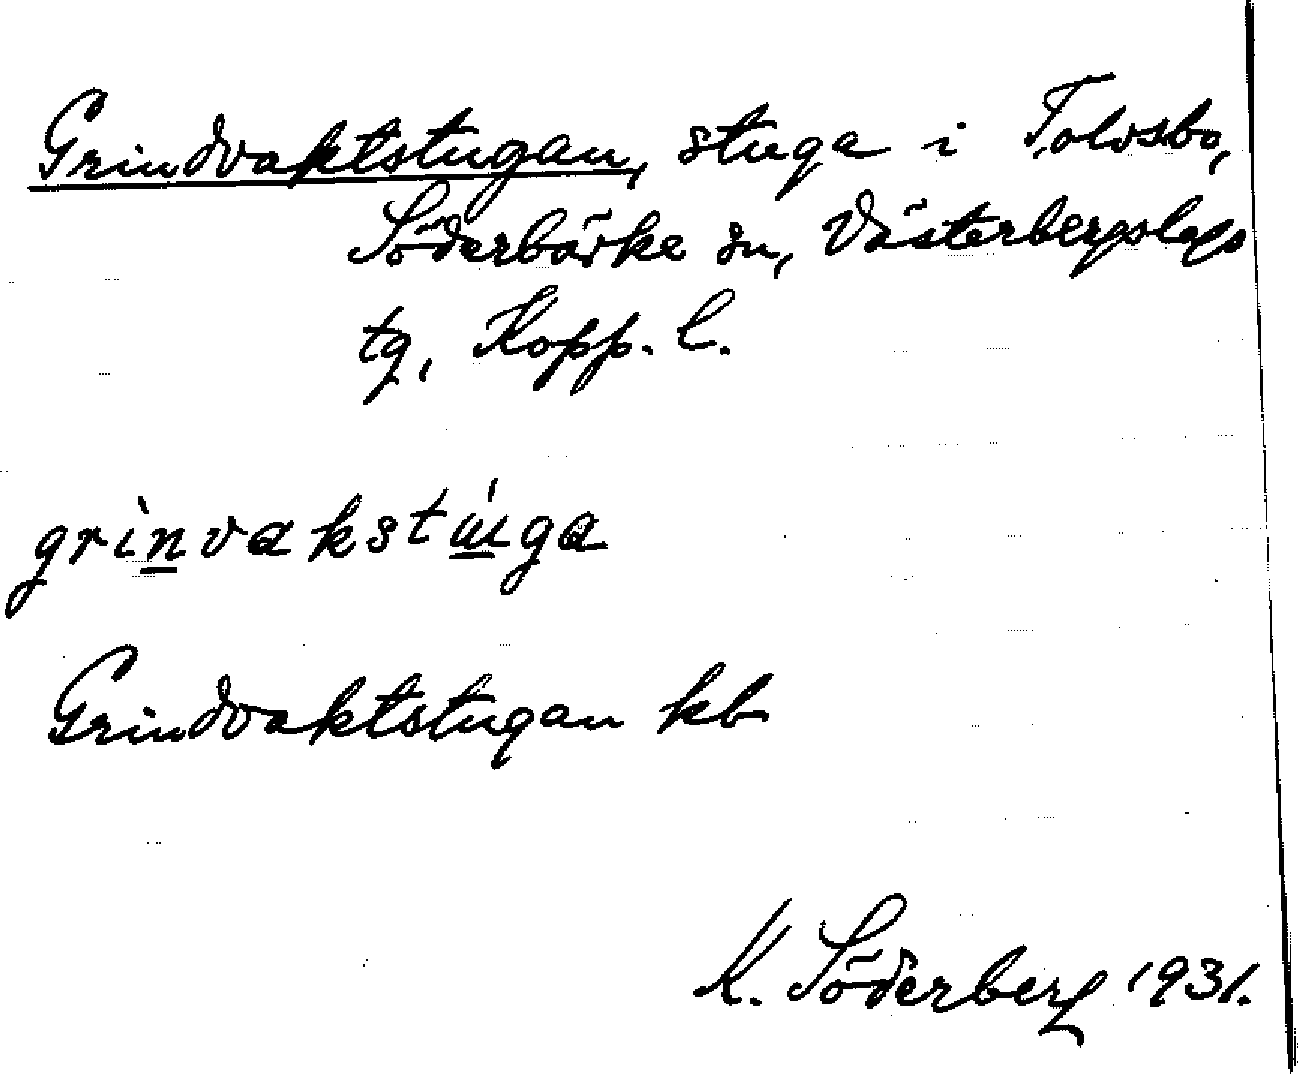 Grindvaktstugan, stuga i Tolvsbo,
Söderbärke sn, Västerbergslags
tg, Kopp. l.
grìnvakstúga
Grindvaktstugan kb
K. Söderberg 1931.